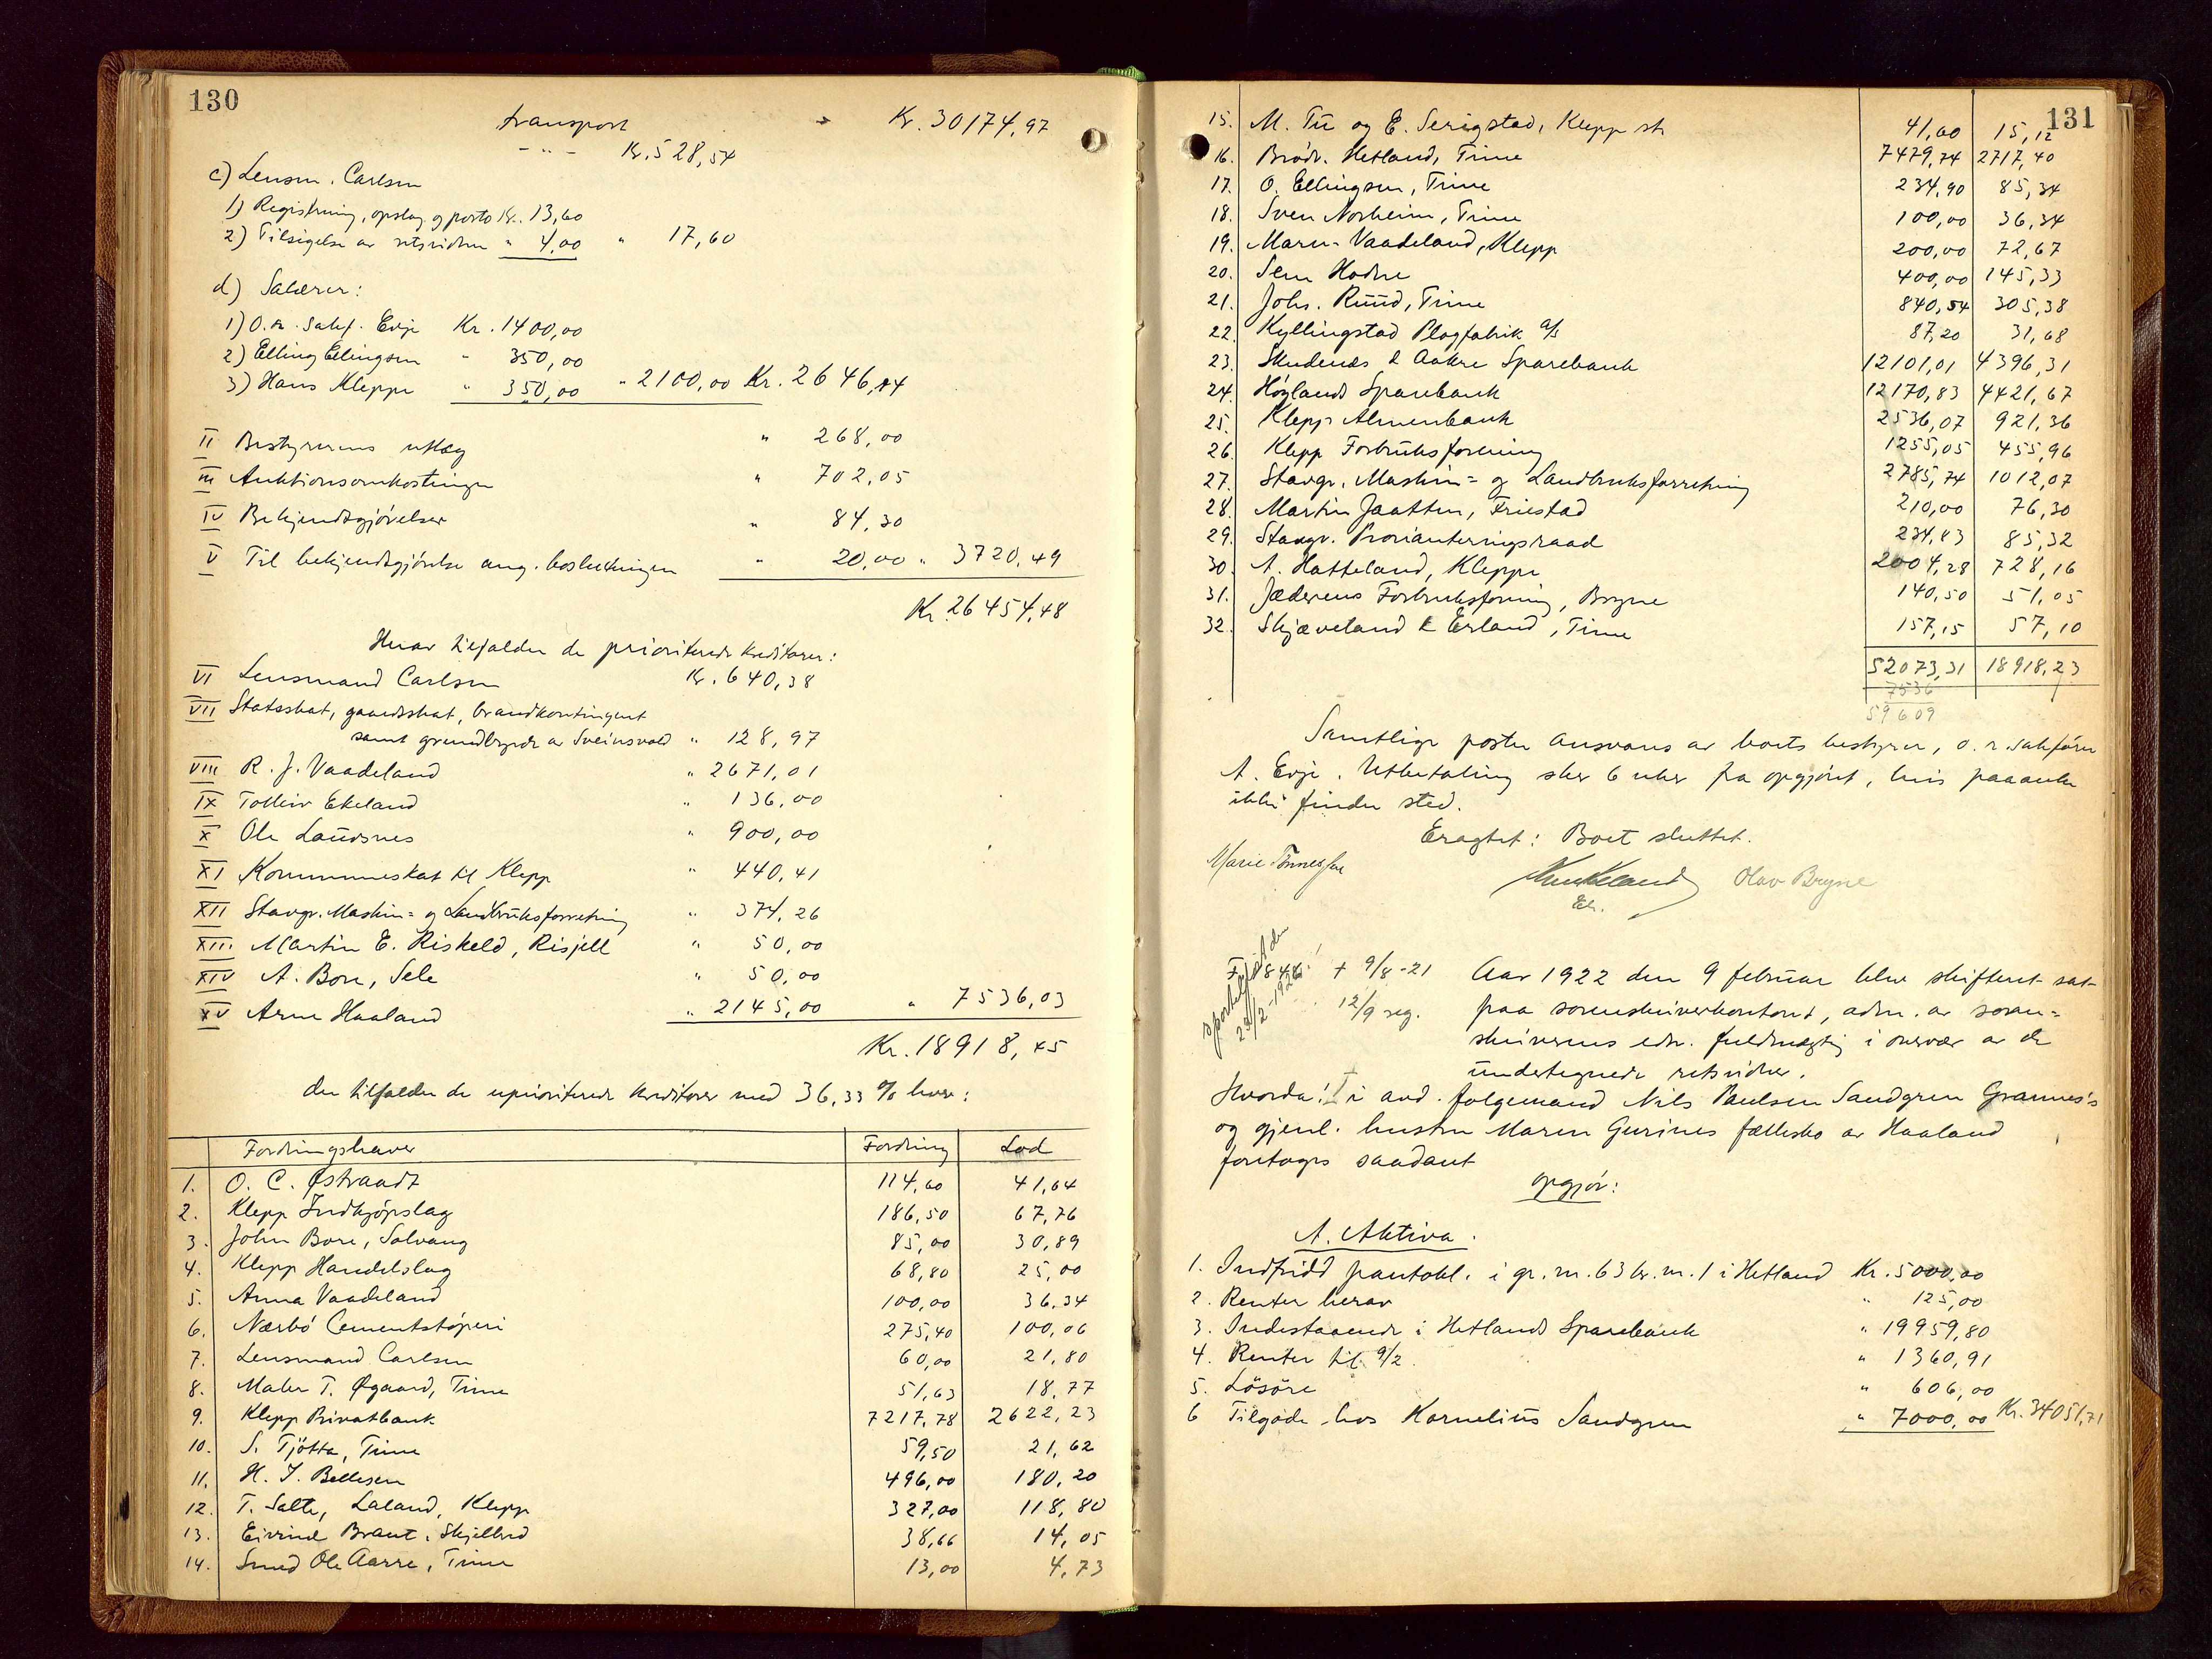 130
transport " Kr. 30174,97
- " - Kr. 528,54
c) Lensm. Carlsen
1) Registrering, opslag og porto Kr. 13,60
2) Tilsigelse av retsvidner " 4,00 " 17,60
d) Salærer:
1) O.r. sakf. Evje Kr. 1400,00
2) Elling Ellingsen " 350,00
3) Hans Kleppe " 350,00 " 2100,00 Kr. 2646,14
II Bestyrerens utlæg " 268,00
III Auktionsomkostninger " 702,05
IV Bekjendtgjörelser " 84,30
V Til bekjendtgjörelse ang. bosluttningen " 20,00 " 3720,49
Kr. 26454,48
Herav tilfalder de prioriterede kreditorer:
VI Lensmand Carlsen Kr. 640,38
VII Statsskat, gaardsskat, brandkontingent
samt grundbygde av Sveinsvold " 128,97
VIII R. J. Vaadeland " 2671,01
IX Tolleiv Ekeland " 136,00
X Ole Laudsnes " 900,00
XI Kommuneskat til Klepp " 440,41
XII Stavgr. Maskin= og Landbruksforretning " 374,26
XIII. Martin E. Riskeld, Risjell " 50,00
XIV A. Bore, Sele " 50,00
XV Arne Haaland " 2145,00 " 7536,03
Kr. 18918,45
der tilfalder de uprioriterede kreditorer med 36,33 % hver:
Fordringshaver Fordring Lod
1. O. C. Østraadt 114,60 41,64
2. Klepp Indkjöpslag 186,50 67,76
3. John Bore, Solvang 85,00 30,89
4. Klepp Handelslag 68,80 25,00
5. Anna Vaadeland 100,00 36,34
6. Nærbö Cementstöperi 275,40 100,06
7. Lensmand Carlsen 60,00 21,80
8. Maler T. Øgaard, Time 51,63 18,77
9. Klepp Privatbank 7217,78 2622,23
10. S. Tjötta, Time 59,50 21,62
11. H. J. Bellesen 496,00 180,20
12. T. Salte, Laland, Klepp 327,00 118,80
13. Eivind Braut, Skjelbred 38,66 14,05
14. Smed Ole Aarre, Time 13,00 4,73
131
15. M. Tu og E. Serigstad, Klepp st. 41,60 15,12
16. Brödr. Hetland, Time 7479,74 2717,40
17. O. Ellingsen, Time 234,90 85,34
18. Sven Norheim, Time 100,00 36,34
19. Maren Vaadeland, Klepp 200,00 72,67
20. Sem Hodne 400,00 145,33
21. Johs. Ruud, Time 840,54 305,38
22. Kyllingstad Plogfabrik A/S 87,20 31,68
23. Skudenes & Aakre Sparebank 12101,01 4396,31
24. Höglands Sparebank 12170,83 4421,67
25. Klepp Almenbank 2536,07 921,36
26. Klepp Forbruksforening 1255,05 455,96
27. Stavgr. Maskin= og Landbruksforretning 2785,74 1012,07
28. Martin Jaatten, Friestad 210,00 76,30
29. Stavgr. Provianteringsraad 234,83 85,32
30. A. Hatteland, Kleppe 2004,28 728,16
31. Jæderens Forbruksforening, Bryne 140,50 51,05
32. Skjæveland & Erland, Time 157,15 57,10
52073,31 18918,23
7536
59609
Samtlige poster ansvares av boets bestyrer, o.r. sakförer
A. Evje. Utbetaling sker 6 uker fra opgjöret, hvis paaanke
ikke finder sted.
Eragtet: Boet sluttet.
Marie Tönnessen Olav Bryne
Ek.
23/2-1926 F. 844. + 9/8-21 Aar 1922 den 9 februar blev skifteret sat
12/9 reg. paa sorenskriverkontoret, adm. av soren=
skriverens edsv. fuldmægtig i overvær av de
undertegnede retsvidner.
Hvorda: I i avd. folgemand Nils Paulsen Sandgren Grannes's
og gjenl. hustru Maren Gurines fællesbo av Haaland
foretoges saadant
opgjör:
A. Aktiva.
1. Indfridd pantobl. i gr. nr. 63 br. nr. 1 i Hetland Kr. 5000,00
2. Renter herav " 125,00
3. Indestaaende i Hetlands Sparebank " 19959,80
4. Renter til 9/2. " 1360,91
5. Lösöre " 606,00
6 Tilgode hos Kornelius Sandgren " 7000,00 Kr. 34051,71